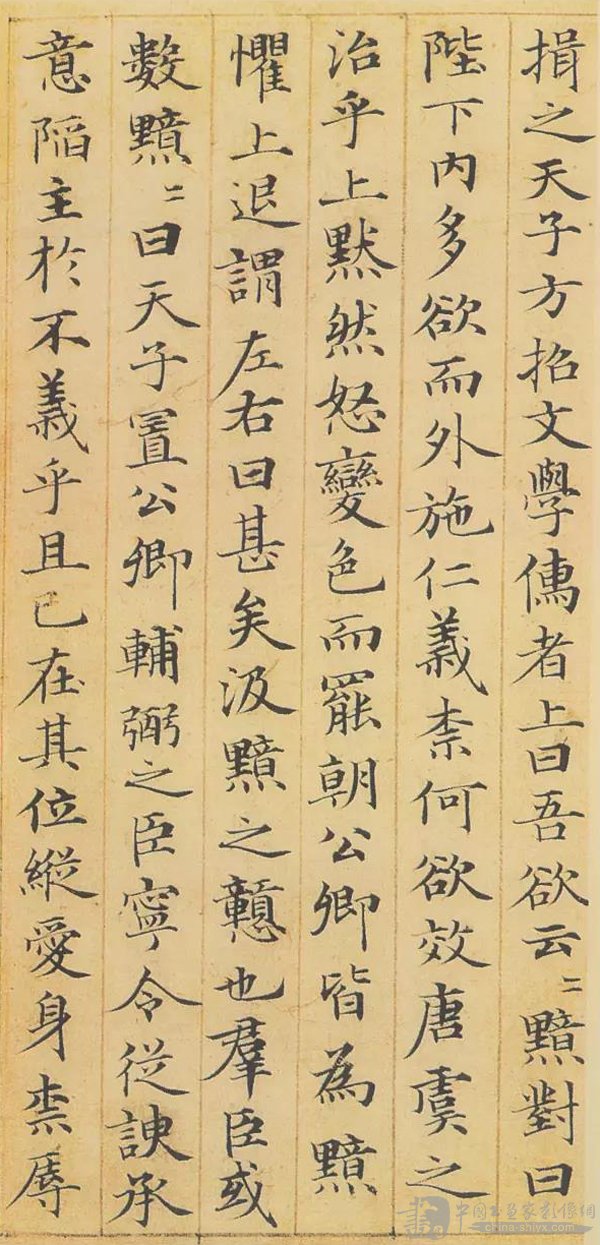 揖之天子方招文學儒者上曰吾欲云〻黯對曰
陛下內多欲而外施仁義柰何欲效唐虞之
治乎上默然怒變色而罷朝公卿皆為黯
懼上退謂左右曰甚矣汲黯之戇也羣臣或
數黯〻曰天子置公卿輔弼之臣寧令從諛承
意陷主於不義乎且已在其位縱愛身柰辱
中国书画家影像網
china-shivx.com